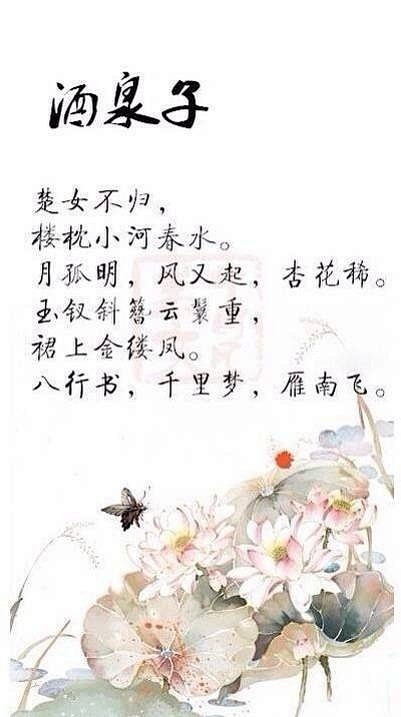 酒泉子
楚女不归，
楼枕小河春水。
月孤明，风又起，杏花稀。
玉钗斜簪云鬟重，
裙上金缕凤。
八行书，千里梦，雁南飞。